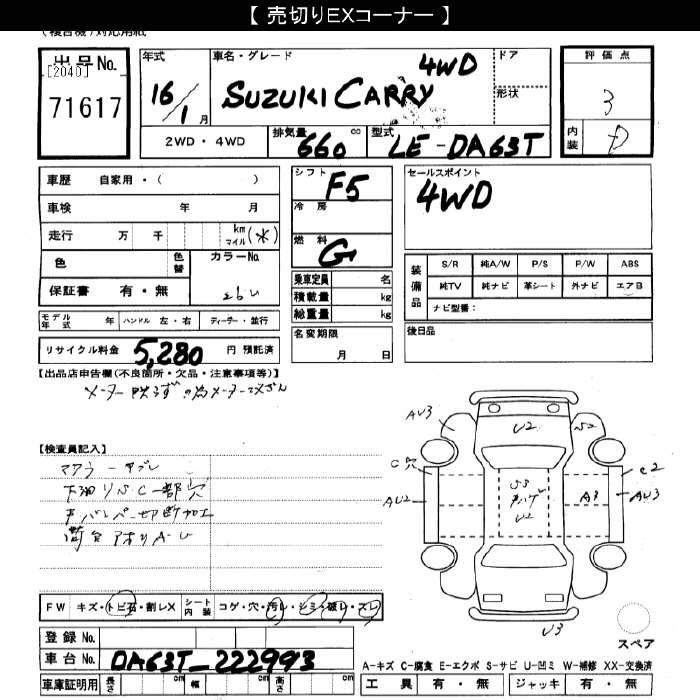 【 売切りEXコーナー 】
(複合名)対応用紙
出品No.
[2040]
71617
年式
16/1月
車名・グレード
SUZUKI CARRY 4WD
ドア
形状
2WD・4WD
排気量
660 cc
型式
LE-DA63T
評価点
3
内装
D
車歴 自家用・( )
車検 年 月
走行 万 千 km マイル (*)
色 色替 カラーNo.
26U
保証書 有・無
モデル年式 年 ハンドル 左・右 ディーラー・並行
リサイクル料金 5,280 円 預託済
シフト
F5
冷房
燃料
G
乗車定員 名
積載量 kg
総重量 kg
名変期限
月 日
セールスポイント
4WD
装備品
S/R 純A/W P/S P/W ABS
純TV 純ナビ 革シート 外ナビ エアB
ナビ型番:
後日品
【出品店申告欄(不良箇所・欠品・注意事項等)】
メーター 改ざん
【検査員記入】
下廻りSC一部穴
切断加工
荷台
AU3
U2
S2
C穴
C2
AU2
SS
U2
A3
AU3
U3
FW キズ・トビ石・割レX シート内装 コゲ・穴・汚レ・シミ・破レ・スレ
登録No.
車台No. DA63T-222993
車庫証明用 長さ cm 幅 cm 高さ cm
スペア
A-キズ C-腐食 E-エクボ S-サビ U-凹ミ W-補修 XX-交換済
工具 有・無 ジャッキ 有・無